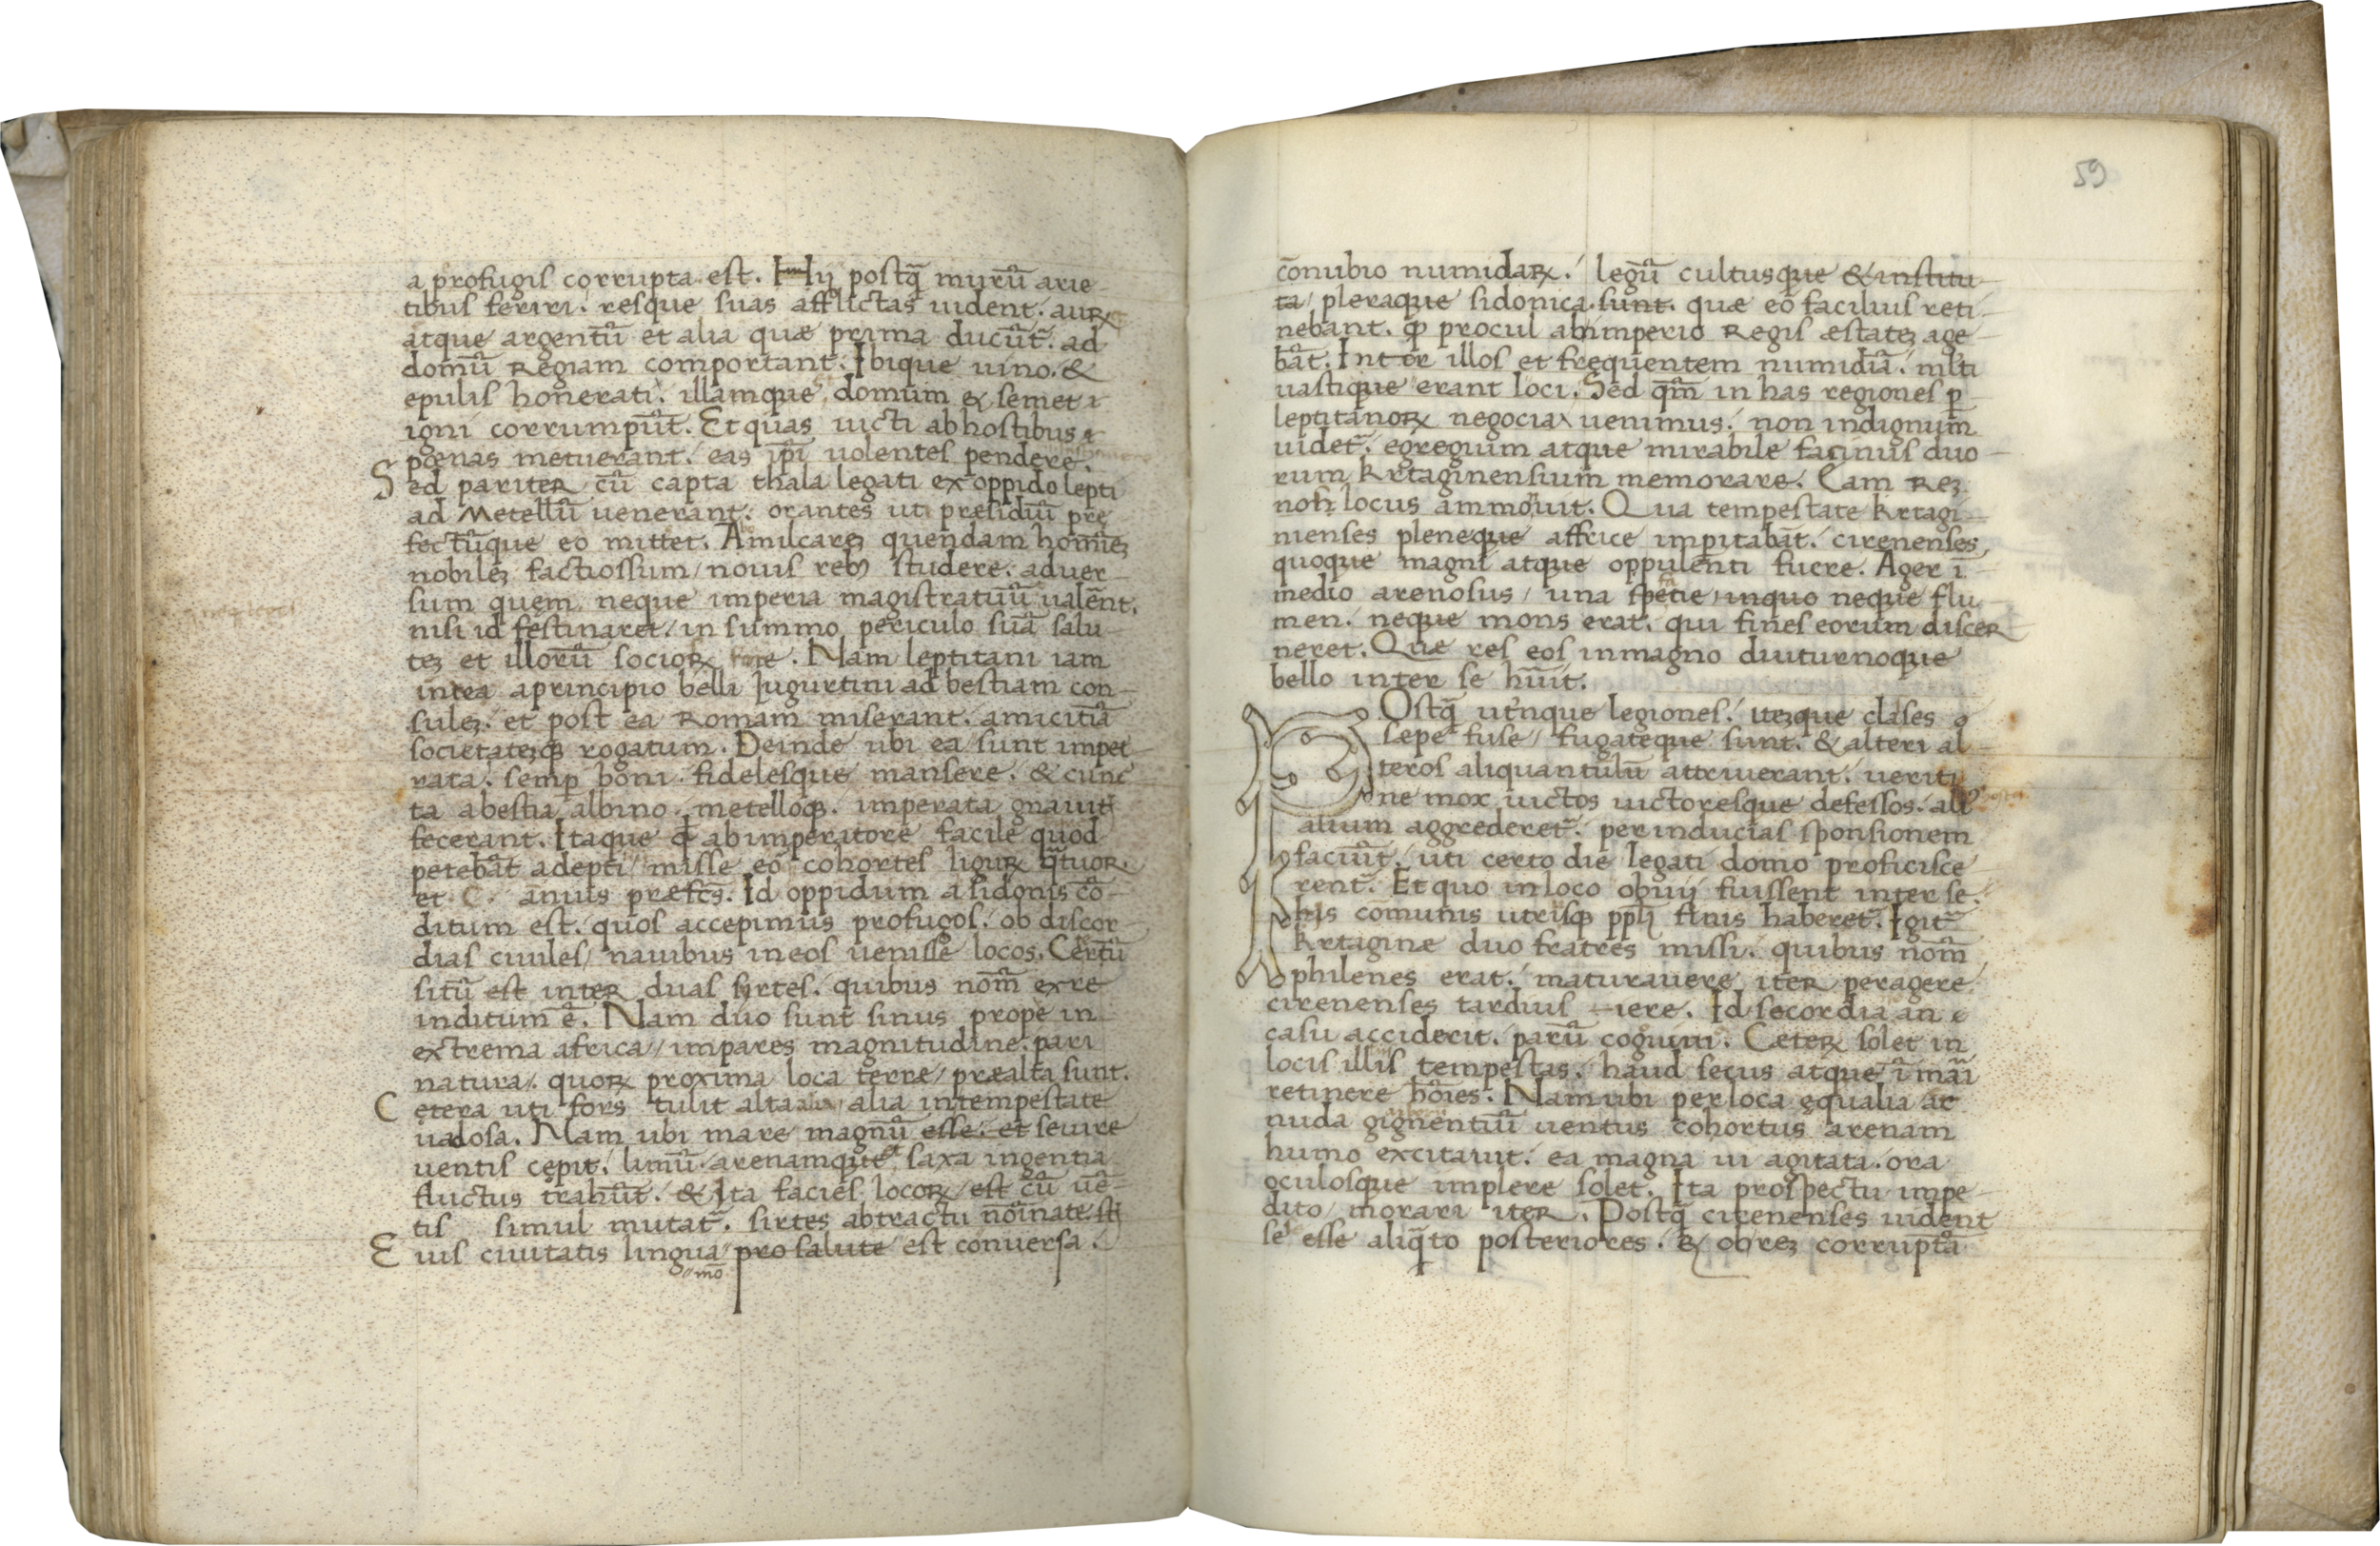 a profugis corrupta est. Hij postq̃ murũ arie-
tibus feriri. resque suas afflictas uident. aurꝝ
atque argentũ et alia quæ prima ducũt̃. ad
domũ Regiam comportant. Ibique uino. &
epulis honerati. illamque domum et semet
igni corrumpũt. Et quas uicti ab hostibus
pœnas metuerant. eas ip̃i uolentes pendere.
Sed pariter cũ capta thala legati ex oppido lepti
ad Metellũ uenerant. orantes uti presidiũ pre
fectũque eo mittet. Amilcareꝫ quendam homineꝫ
nobileꝫ factiossum / nouis rebꝰ studere. aduer-
sum quem neque imperia magistratuũ ualẽnt.
nisi id festinaret / in summo periculo suã salu-
teꝫ et illorũ sociorꝝ fore. Nam leptitani iam
intea a principio belli Jugurtini ad bestiam con-
suleꝫ. et post ea Romam miserant. amicitiã
societateꝫqꝫ rogatum. Deinde ubi ea sunt impet-
rata. semꝑ boni. fidelesque mansere. & cunc
ta a bestia albino. metelloqꝫ. imperata gnauit
fecerant. Itaque ab imperatore facile quod
petebãt adepti / misse eo cohortes ligurꝝ q̃tuor.
et C. anius præfc̃s. Id oppidum a sidonis cõ-
ditum est. quos accepimus profugos. ob discor-
dias ciuiles / nauibus in eos uenisse locos. Certũ
sitũ est inter duas sirtes. quibus nom̃ ex re
inditum ẽ. Nam duo sunt sinus prope in
extrema africa / impares magnitudine. pari
natura. quorꝝ proxima loca terræ / præalta sunt.
Cetera uti fors tulit alta alia in tempestate
uadosa. Nam ubi mare magnũ esse. et seuire
uentis cepit. limũ. arenamque saxa ingentia
fluctus trahũt. & Ita facies locorꝝ est cũ uẽ-
tis simul mutat̃. sirtes ab tractu nõinate st̃
Euis ciuitatis lingua pro salute est conuersa.
mõ
59
cõnubio numidarꝝ. legũ cultusque & institu-
ta / pleraque sidonica. sunt. quæ eo facilius reti-
nebant. ꝙ procul ab imperio Regis æstateꝫ age-
bãt. Inter illos et frequentem numidiã. mlti
uastique erant loci. Sed qm̃ in has regiones ꝑ
leptitanorꝝ negocia uenimus. non indignum
uidet̃. egregium atque mirabile facinus duo-
rum krtaginensium memorare. Eam reꝫ
nob̃ locus ammonuit. Qua tempestate krtagi-
nienses pleneque affrice impitabãt. cirenenses
quoque magni atque oppulenti fuere. Ager ĩ
medio arenosus / una spetie / in quo neque flu-
men. neque mons erat. qui fines eorum discer
neret. Quæ res eos in magno diuturnoque
bello inter se hũit.
POstq̃ utrinque legiones. iteꝫque clases
sæpe fuse / fugateque sunt. & alteri al-
teros aliquantulũ attriuerant. ueriti
ne mox uictos uictoresque defessos. ali
alium aggrederet̃. per inducias sponsionem
faciũt. uti certo die legati domo proficisce
rent̃. Et quo in loco obuij fuissent inter se.
his comunis utrisqꝫ ppl̃i finis haberet̃. Igit̃
krtaginæ duo fratres missi. quibus nom̃
philenes erat. maturauere iter peragere.
cirenenses tardius iere. Id secordia an
casu acciderit. parũ cognoui. Ceterꝝ solet in
locis illis tempestas. haud secus atque ĩ mãi
retinere hõies. Nam ubi per loca equalia ac
nuda gignentiũ uentus cohortus arenam
humo excitauit. ea magna ui agitata. ora
oculosque implere solet. Ita prospectu impe-
dito / morari iter. Postq̃ cirenenses uident
se esse aliq̃to posteriores. & ob reꝫ corruptã